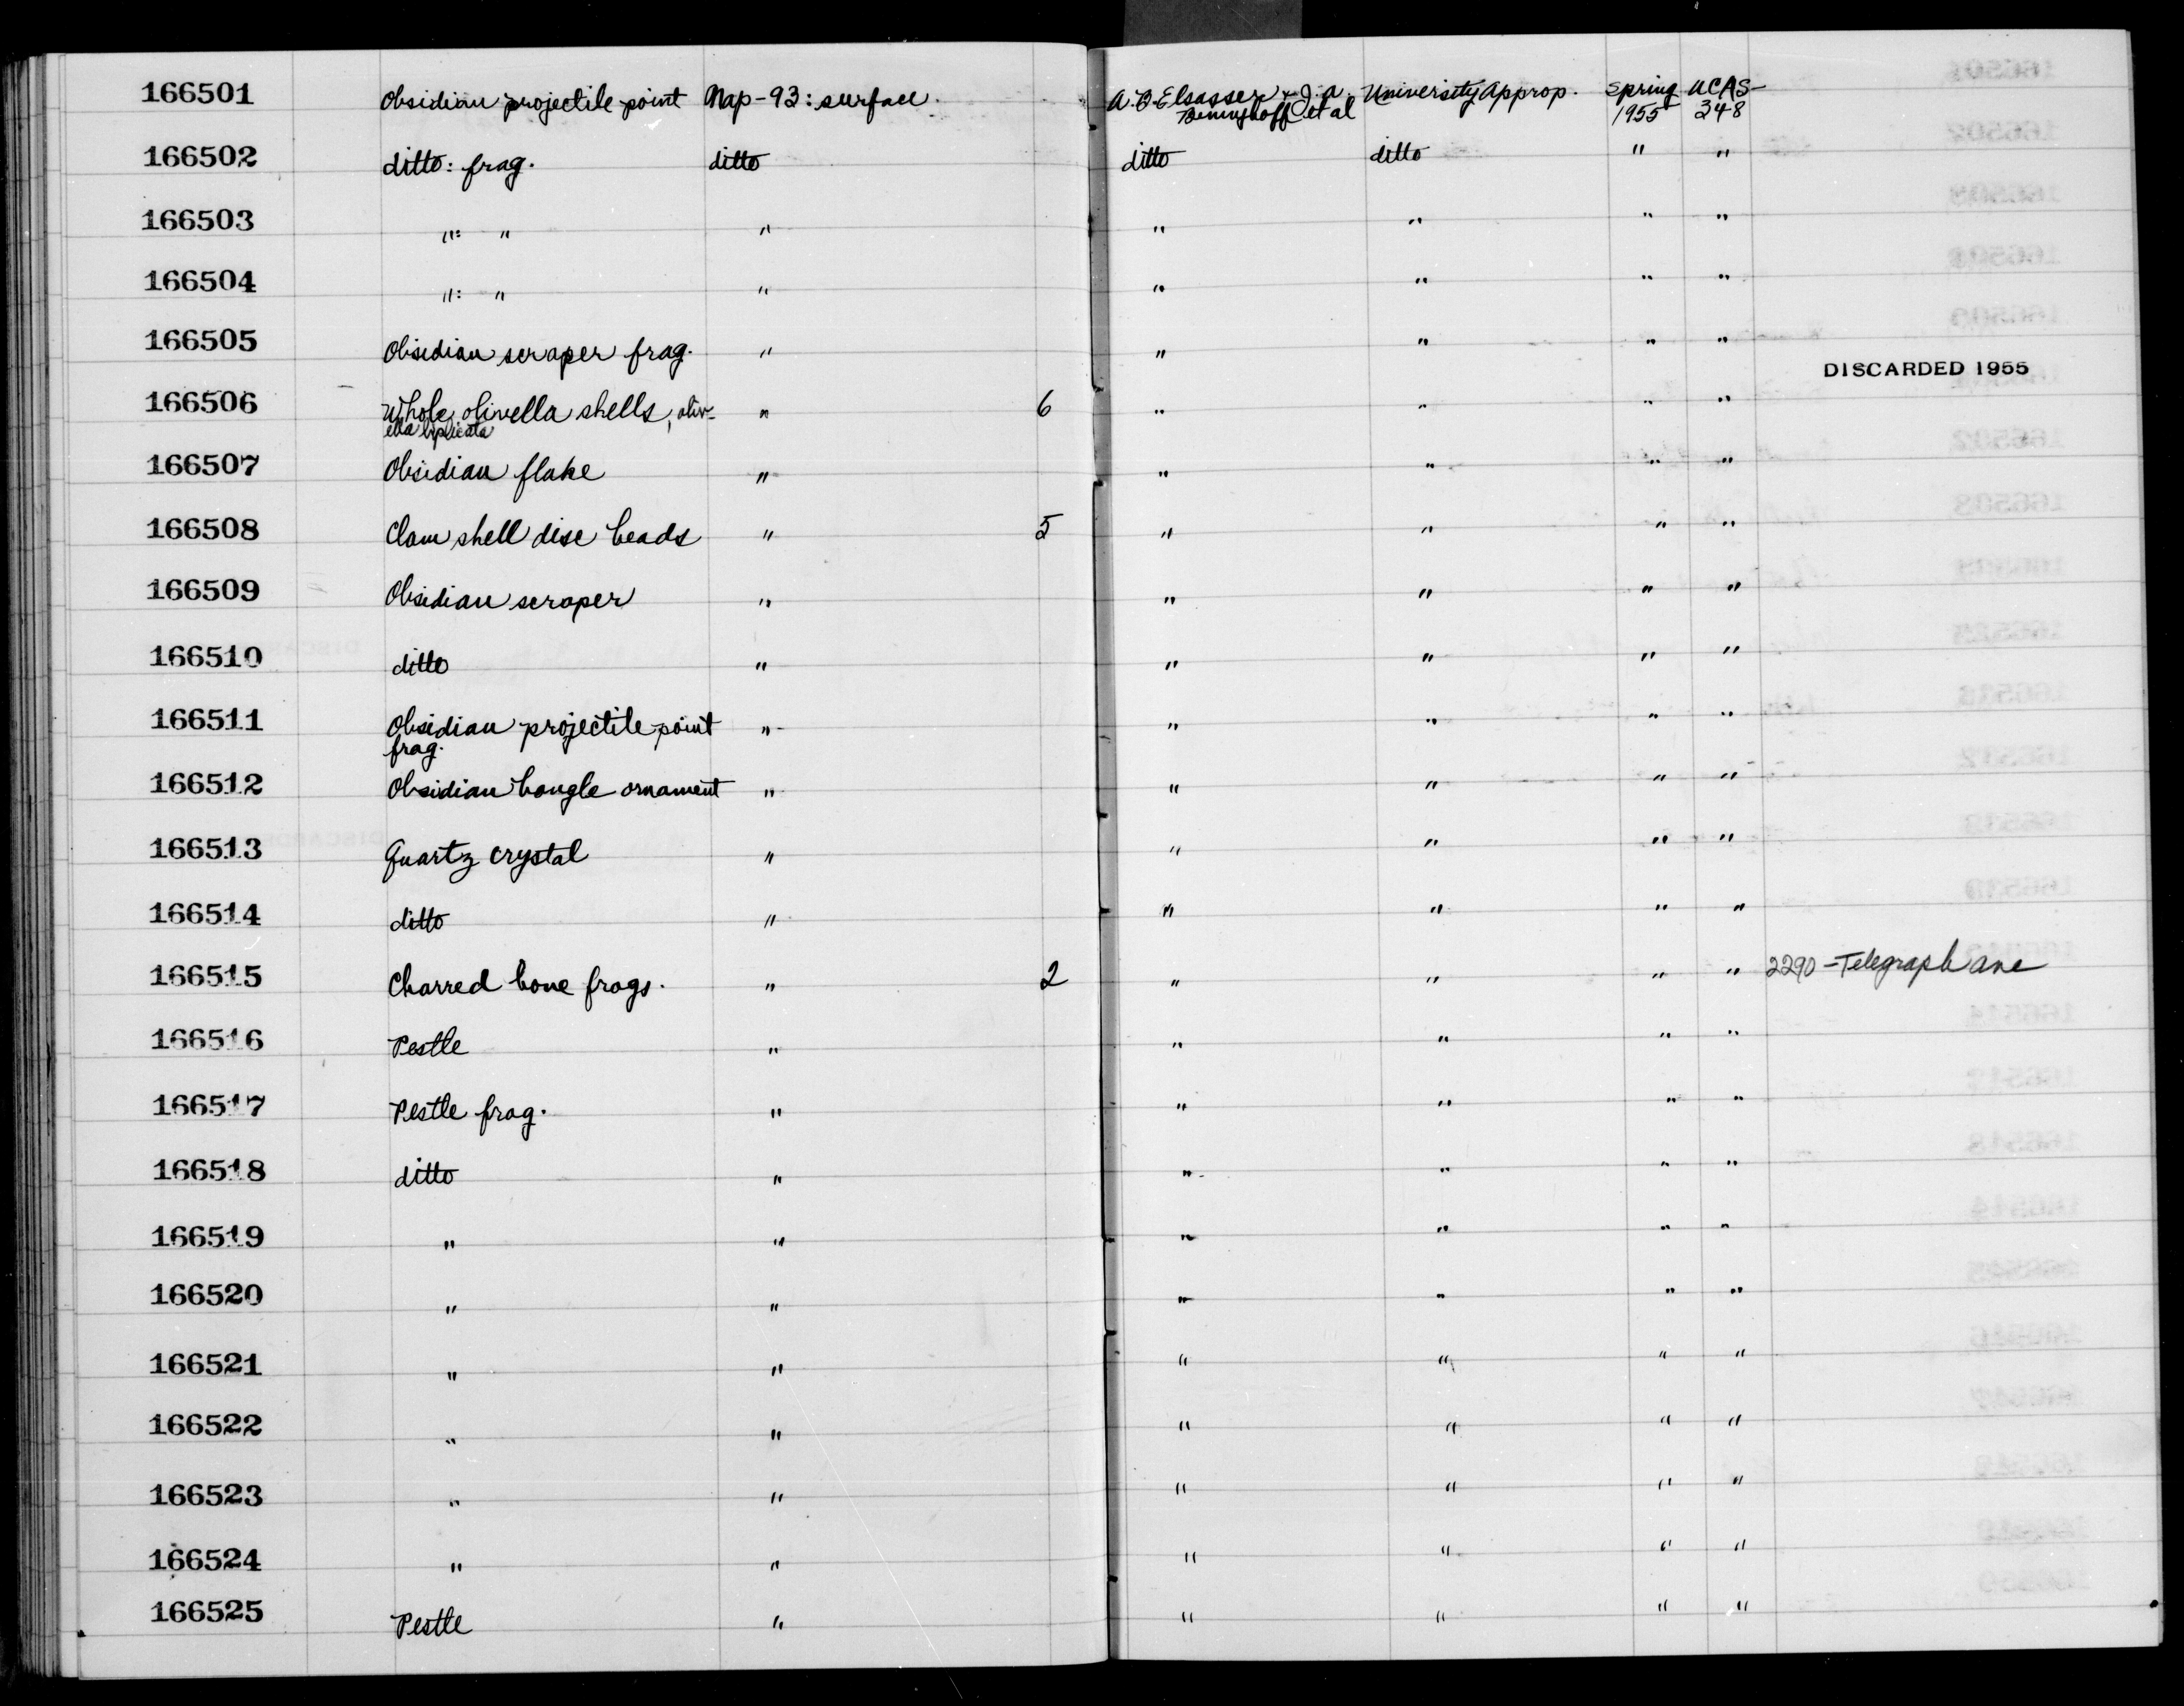 166501 Obsidian projectile point Nap-93: surface. A.B. Elsasser & J.A. University Approp. Spring UCAS-
Beninghoff et al 1955 348
166502 ditto: frag. ditto ditto ditto " "
166503 ": " " " " " "
166504 ": " " " " " "
166505 Obsidian scraper frag. " " " " "
DISCARDED 1955
166506 Whole olivella shells, oliv- " 6 " " " "
ella biplicata
166507 Obsidian flake " " " " "
166508 Clam shell disc beads " 5 " " " "
166509 Obsidian scraper " " " " "
166510 ditto " " " " "
166511 Obsidian projectile point " " " " "
frag.
166512 Obsidian bangle ornament " " " " "
166513 Quartz crystal " " " " "
166514 ditto " " " " "
166515 Charred bone frags. " 2 " " " " 2290 - Telegraph ave
166516 Pestle " " " " "
166517 Pestle frag. " " " " "
166518 ditto " " " " "
166519 " " " " " "
166520 " " " " " "
166521 " " " " " "
166522 " " " " " "
166523 " " " " " "
166524 " " " " " "
166525 Pestle " " " " "